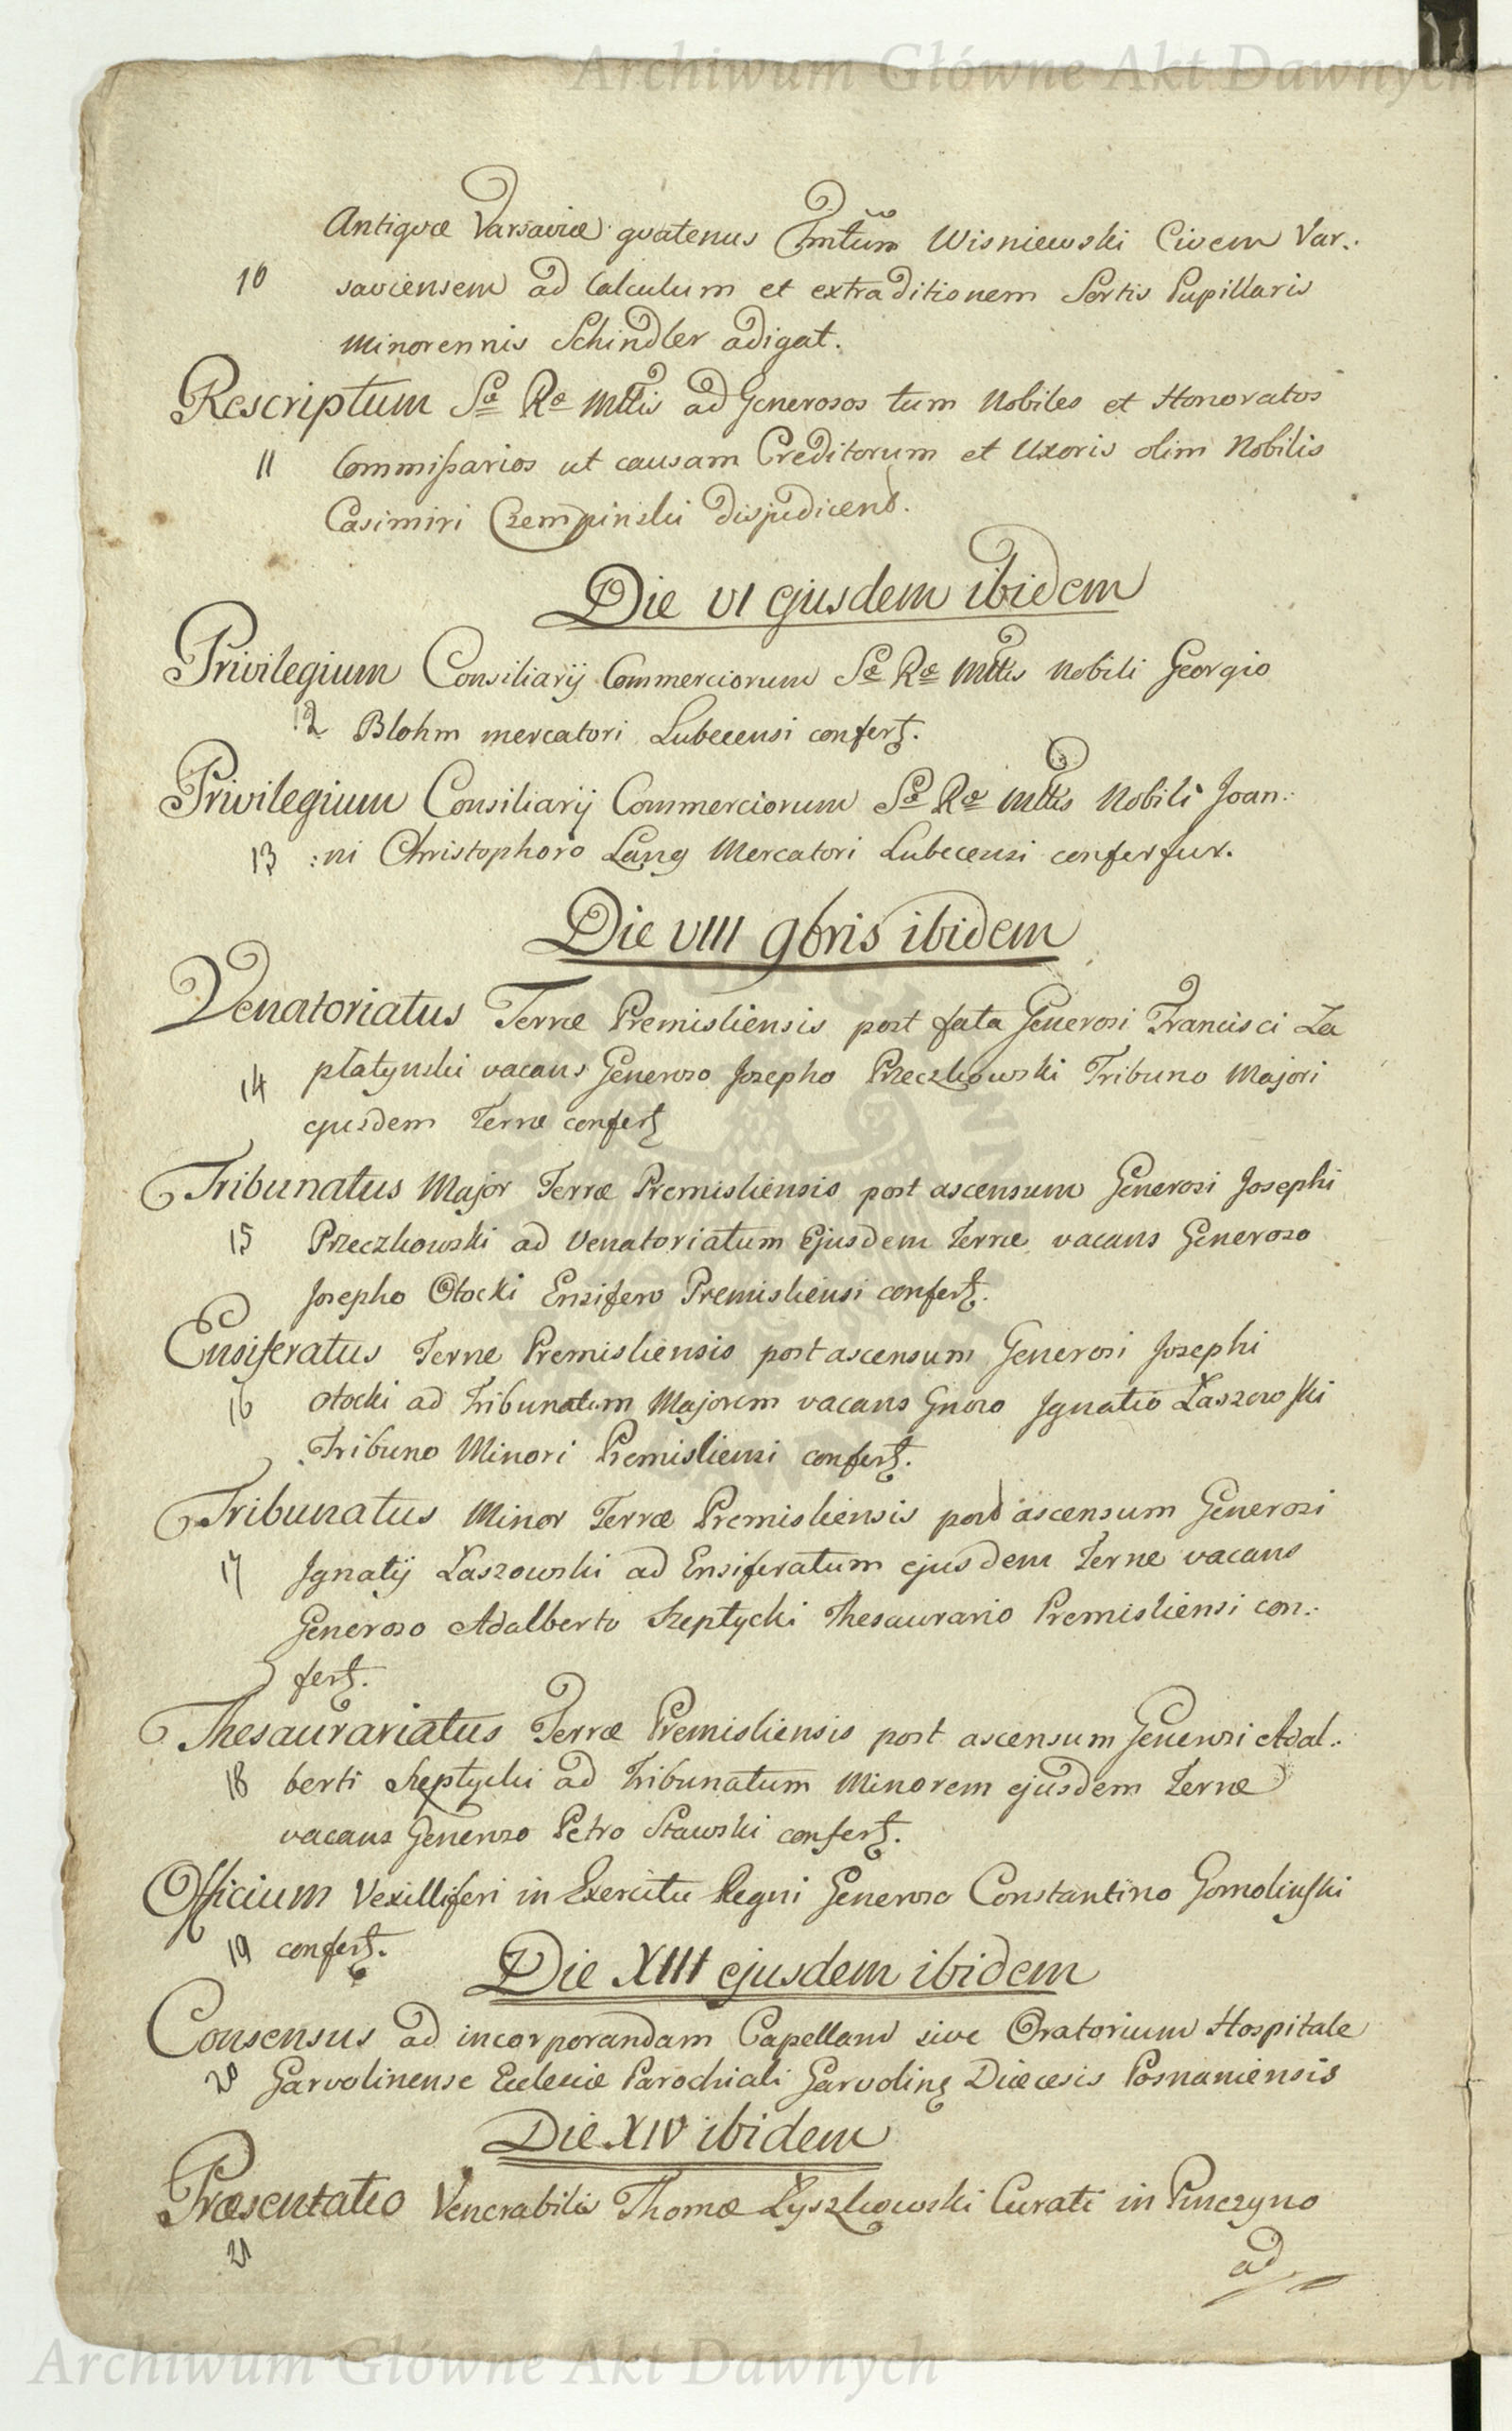 Archiwum Główne Akt Dawnych
Antiquæ Varsaviæ quatenus Wisniewski Civem Var:
10 saviensem ad Calculum et extraditionem Sortis Pupillaris
Minorennis Schindler adigat.
Rescriptum Sæ Ræ Mttis ad Generosos tum Nobiles et Honoratos
11 Commissarios ut causam Creditorum et Uxoris olim Nobilis
Casimiri Czempinski disjudicend.
Die VI ejusdem ibidem
Privilegium Consiliarij Commerciorum Sæ Ræ Mttis Nobili Georgio
12 Blohm mercatori Lubecensi confert.
Privilegium Consiliarij Commerciorum Sæ Ræ Mttis Nobili Joan:
13 :ni Christophoro Lang Mercatori Lubecensi confertur.
Die VIII 9bris ibidem
Venatoriatus Terræ Premisliensis post fata Generosi Francisci Za
14 płatynski vacans Generoso Josepho Przeczkowski Tribuno Majori
ejusdem Terræ confert
Tribunatus Major Terræ Premisliensis post ascensum Generosi Josephi
15 Przeczkowski ad Venatoriatum Ejusdem Terræ vacans Generoso
Josepho Otocki Ensifero Premisliensi confert.
Ensiferatus Terræ Premisliensis post ascensum Generosi Josephi
16 Otocki ad Tribunatum Majorem vacans Gnoso Ignatio Łaszowski
Tribuno Minori Premisliensi confert.
Tribunatus Minor Terræ Premisliensis post ascensum Generosi
17 Ignatij Łaszowski ad Ensiferatum ejusdem Terræ vacans
Generoso Adalberto Szeptycki Thesaurario Premisliensi con:
fert.
Thesaurariatus Terræ Premisliensis post ascensum Generosi Adal:
18 berti Szeptycki ad Tribunatum Minorem ejusdem Terræ
vacans Generoso Petro Stawski confert.
Officium Vexilliferi in Exercitu Regni Generoso Constantino Gomolinski
19 confert.
Die XIII ejusdem ibidem
Consensus ad incorporandam Capellam sive Oratorium Hospitale
20 Garvolinense Ecclesiæ Parochiali Garvolinę Diæcesis Posnaniensis
Die XIV ibidem
Præsentatio Venerabilis Thomæ Łyszkowski Curati in Pinczyno
21
ad
Archiwum Główne Akt Dawnych